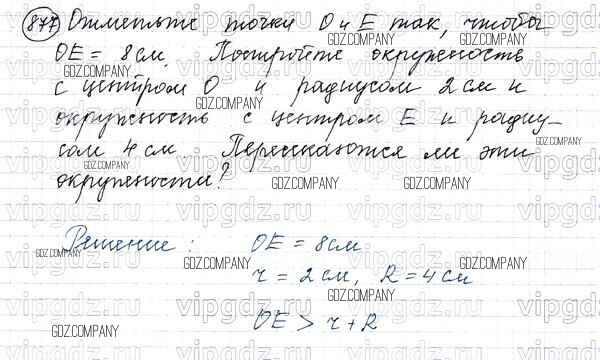 877 Отметьте точки O и E так, чтобы
OE = 8 см. Постройте окружность
с центром O и радиусом 2 см и
окружность с центром E и радиу-
сом 4 см. Пересекаются ли эти
окружности?
Решение: OE = 8 см
r = 2 см, R = 4 см
OE > r + R
GDZ.COMPANY
vipgdz.ru